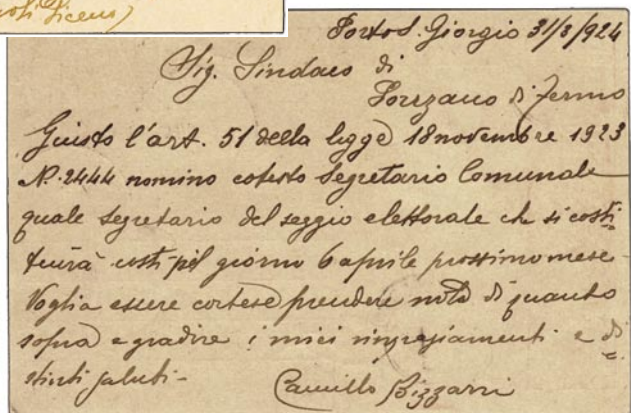 Porto S. Giorgio 31/3/924
Sig. Sindaco di
Ponzano di Fermo
Giusto l'art. 51 della legge 18 novembre 1923
N. 2444 nomino cotesto Segretario Comunale
quale segretario del seggio elettorale che si costi
tuirà costì pel giorno 6 aprile prossimo mese -
Voglia essere cortese prendere nota di quanto
sopra e gradire i miei ringraziamenti e di
stinti saluti -
Camillo Bizzarri